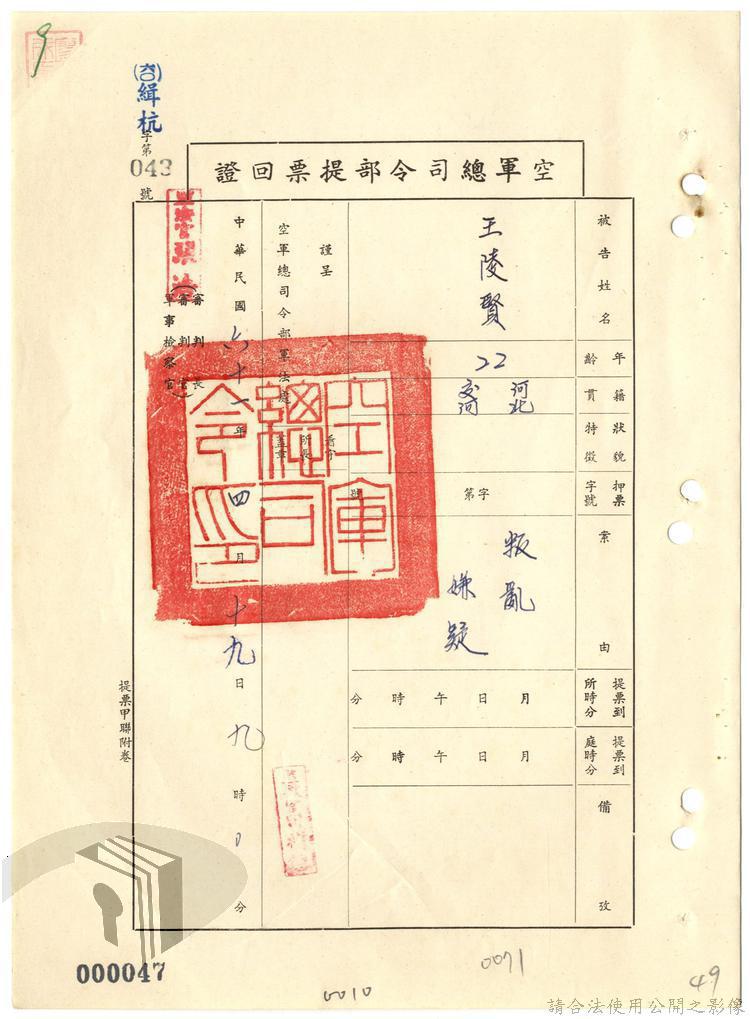 (61)緝杭
字第
043
號
空軍總司令部提票回證
被告姓名
王陵賢
年齡
22
籍貫
河北
交河
狀貌
特徵
押票
字號
字第
號
案由
叛亂
嫌疑
提票到
所時分
月日午時分
提票到
庭時分
月日午時分
備攷
謹呈
空軍總司令部軍法處
看守
所長
蓋章
空軍
總司
令印
中華民國六十一年四月十九日九時0分
審判長
(審判官)
軍事檢察官
提票甲聯附卷
000047
0010
0071
49
請合法使用公開之影像